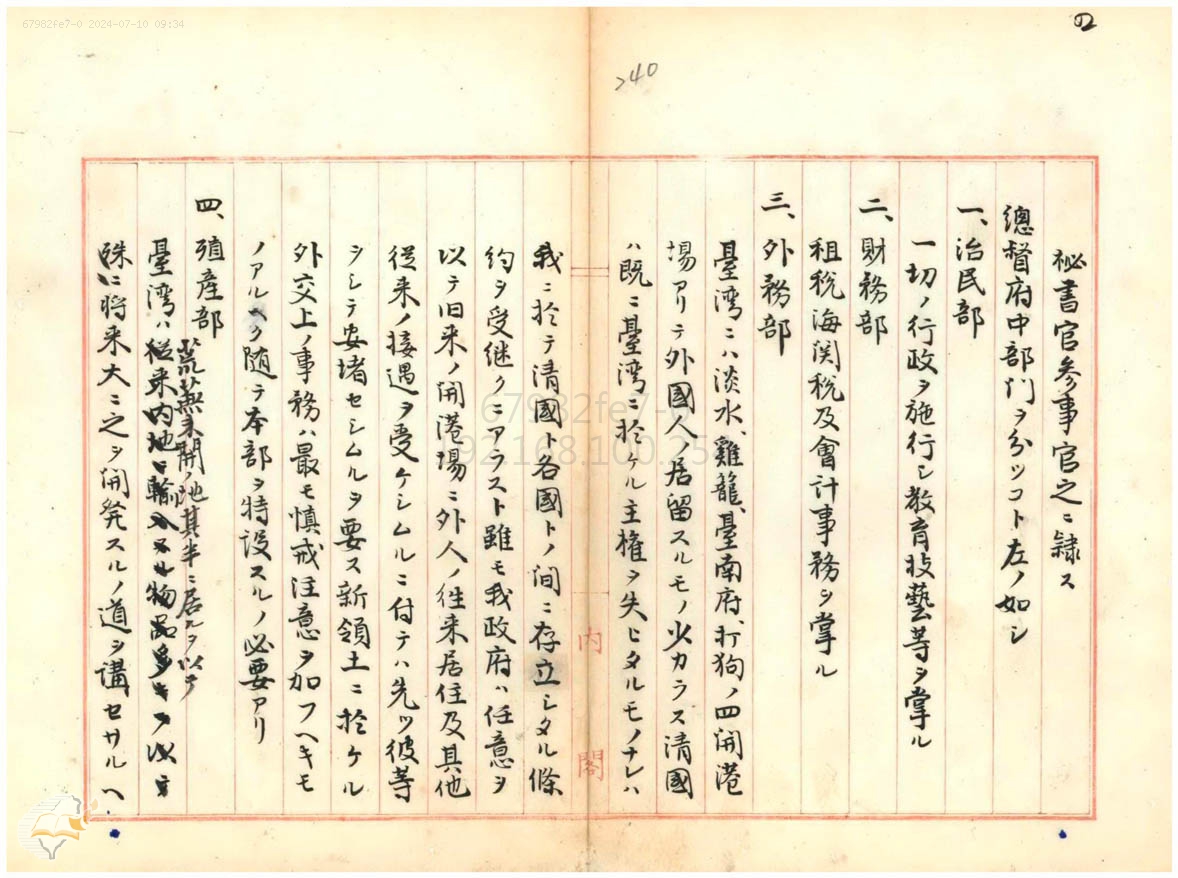 67982fe7-0 2024-07-10 09:34
240
祕書官參事官之ニ隷ス
總督府中部門ヲ分ツコト左ノ如シ
一、治民部
一切ノ行政ヲ施行シ教育技藝等ヲ掌ル
二、財務部
租税海関税及會計事務ヲ掌ル
三、外務部
臺湾ニハ淡水、雞籠、臺南府、打狗ノ四開港
場アリテ外國人ノ居留スルモノ少カラス清國
ハ既ニ臺湾ニ於ケル主權ヲ失ヒタルモノナレハ
内閣
我ニ於テ清國ト各國トノ间ニ存立シタル條
約ヲ受継クニアラスト雖モ我政府ハ任意ヲ
以テ旧来ノ開港場ニ外人ノ往来居住及其他
従来ノ接遇ヲ受ケシムルニ付テハ先ツ彼等
ヲシテ安堵セシムルヲ要ス新領土ニ於ケル
外交上ノ事務ハ最モ慎戒注意ヲ加フヘキモ
ノアルヘク随テ本部ヲ特設スルノ必要アリ
四、殖産部
荒蕪未開ノ地其半ニ居ルヲ以テ
臺湾ハ従来内地ニ輸入スル物品多キヲ以テ
殊ニ将来大ニ之ヲ開発スルノ道ヲ講セサルヘ
67982fe7-0
192.168.100.25